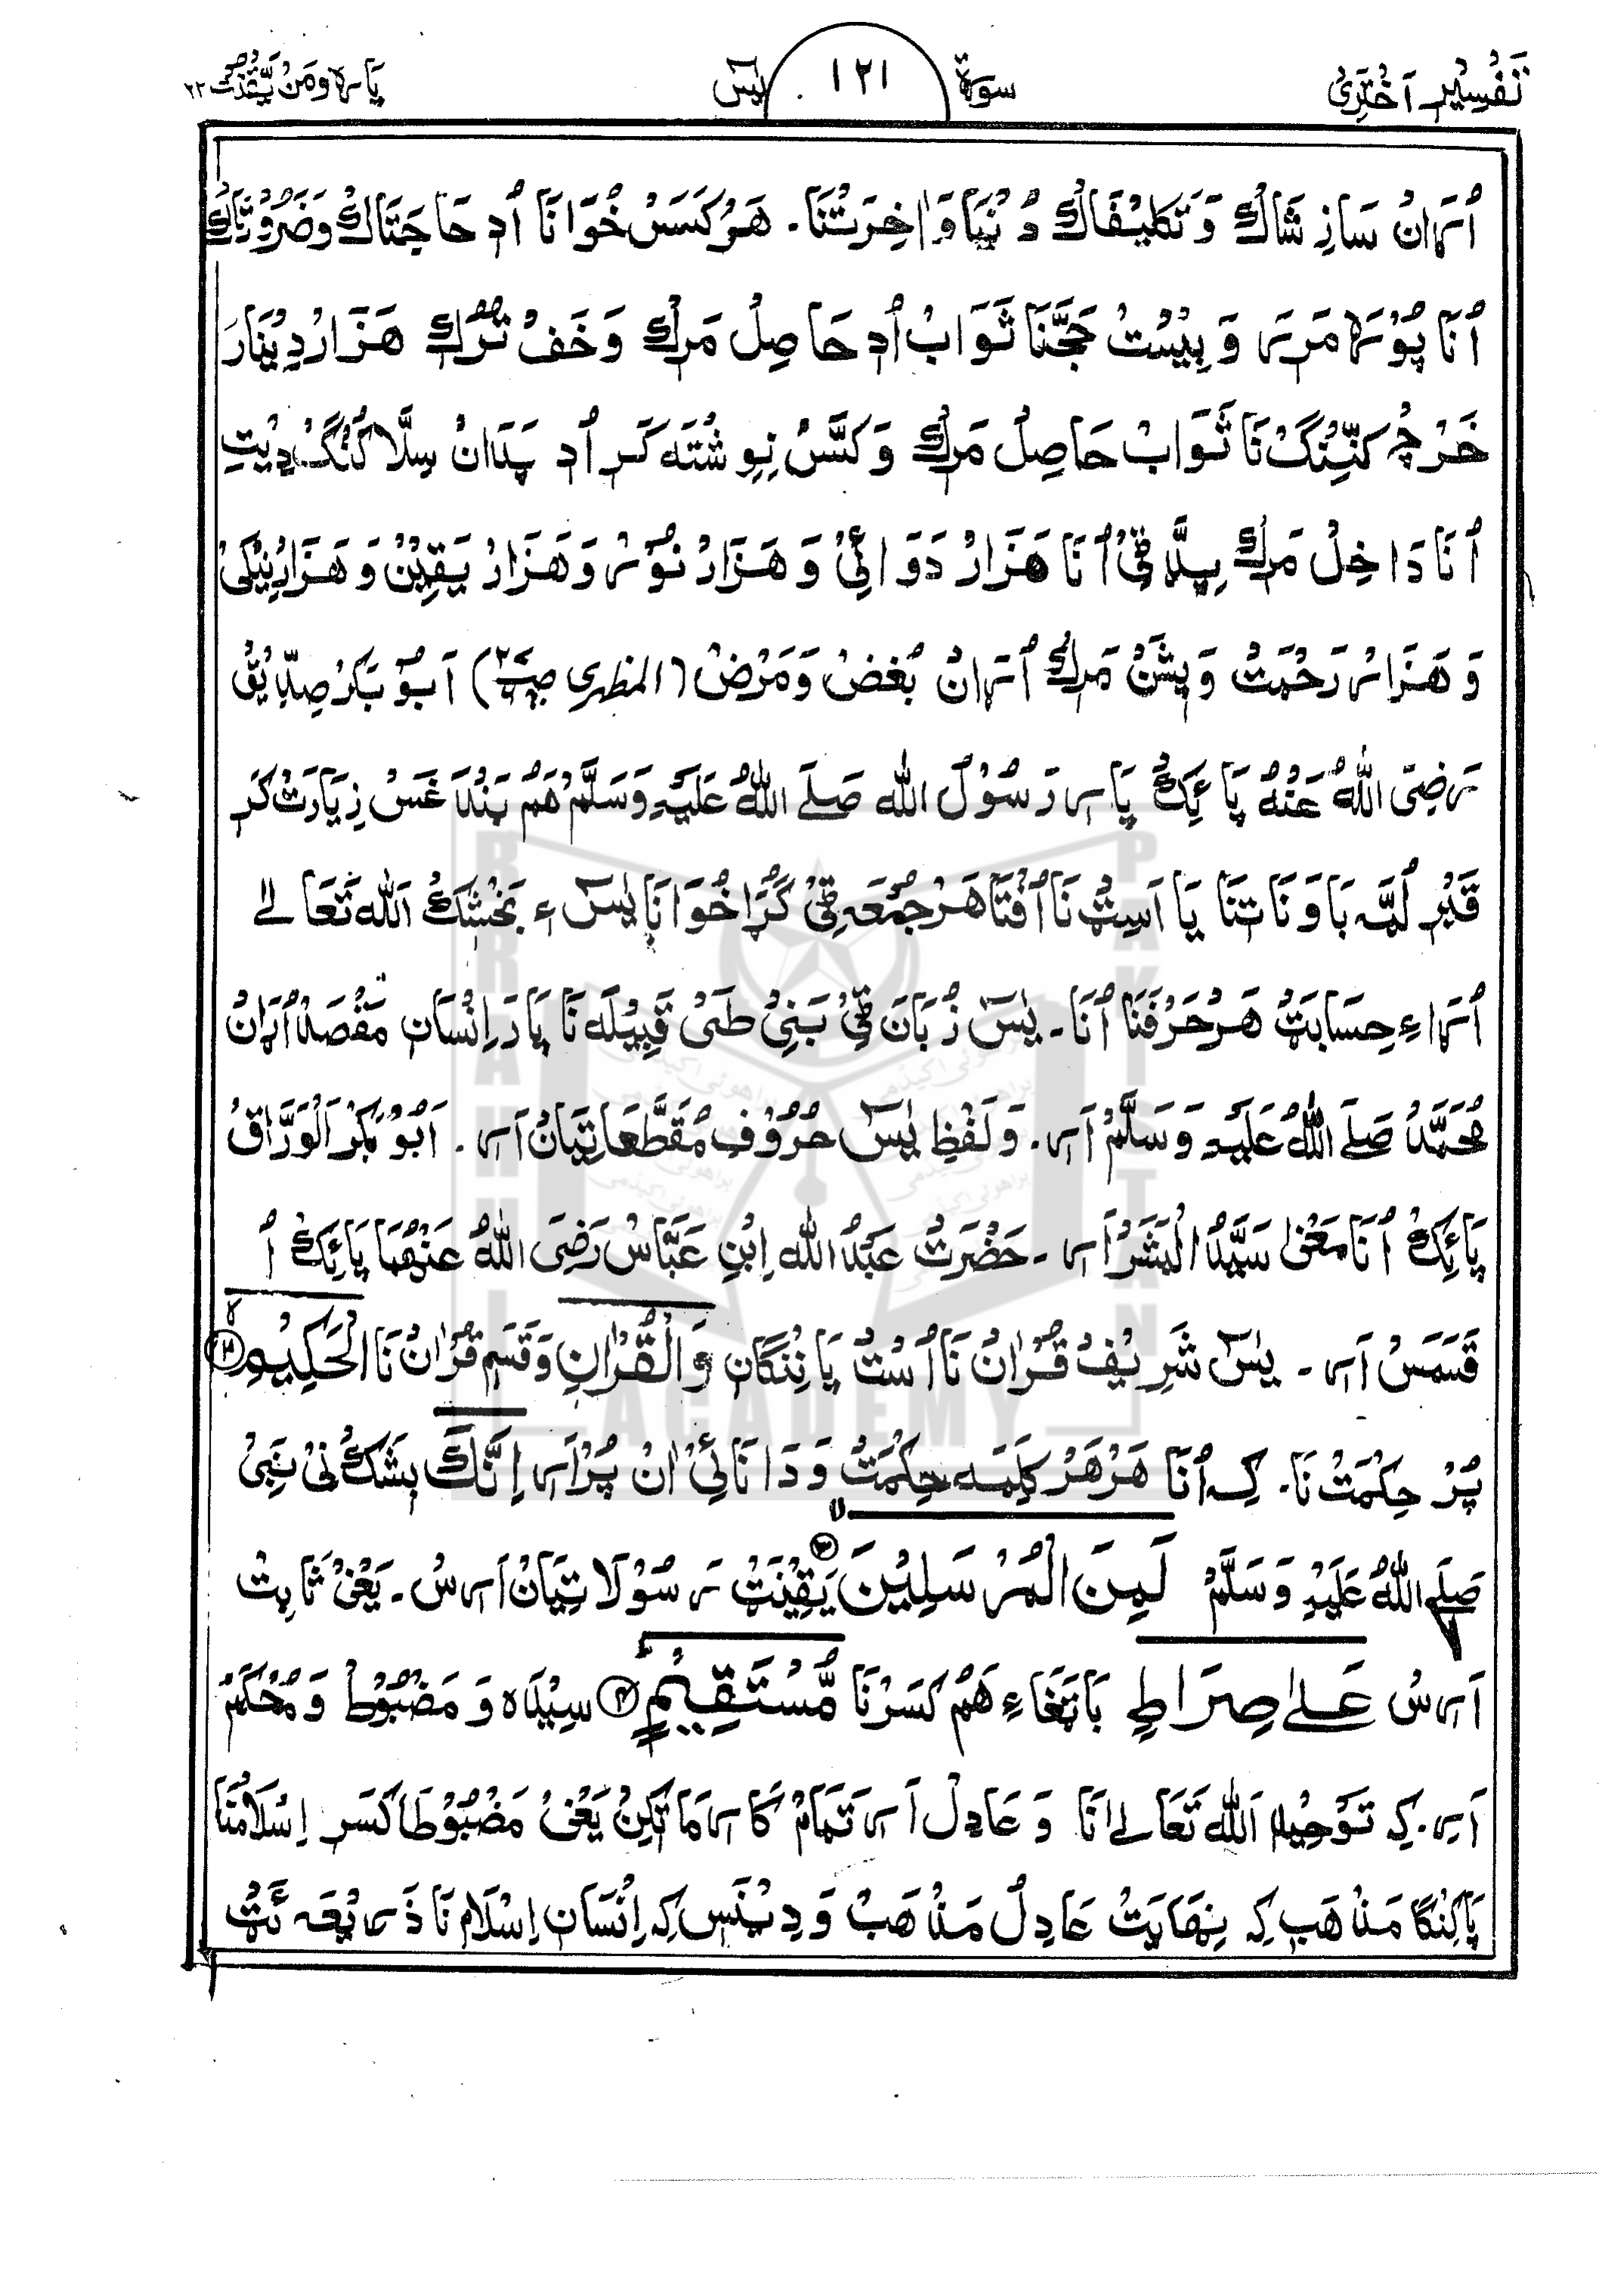 تَفْسِیْرِ اَخْتَرِیْ سورۃ یٰسٓ ۱۲۱ پارہ وَمَنْ یَّقْنُتْ ۲۲
اُرَان سَازِشَاکْ وَ تَکْلِیْفَاکْ دُنْیَا وَ اٰخِرَتْنَا۔ ھَرْکَسَسْ خُوَانَا اُدِ حَاجَتَاکْ وَضَرُوْرَتَاکْ
اُنَا پُوْرَہ مَرِرَہ وَ بِیْسْتْ حَجَّنَا ثَوَابْ اُدِ حَاصِلْ مَرِکْ وَ خَفْ تُرُکْ ھَزَارْ دِیْنَارْ
خَرْچْ کَنِّنْگ نَا ثَوَابْ حَاصِلْ مَرِکْ وَ کَسَّسْ نِوِشْتَہ کَرِ اُدِ پَدَانْ سِلَّا کُنْگ دِیْتِ
اُنَا دَاخِلْ مَرِکْ پِلَّا ٹِیْ اُنَا ھَزَارْ دَوَائِیْ وَ ھَزَارْ نُوْرْ وَ ھَزَارْ یَقِیْنْ وَ ھَزَارْ نِیْکِیْ
وَ ھَزَارْ رَحْمَتْ وَ پِشَّنْ مَرِکْ اُرَانْ بُغْضْ وَ مَرْضْ (المظہری) اَبُوْبَکَرْ صِدِّیْقْ
رَضِیَ اللّٰہُ عَنْہُ پَائِکْ پَارِ رَسُوْلُ اللّٰہ صَلَے اللّٰہُ عَلَیْہِ وَسَلَّمْ ھَمْ بَنْدَغَسْ زِیَارَتْ کَرِ
قَبْرِ لُمَّہ بَاوَنَا تِنَا یَا اَسِٹْ نَا اُفْتَا ھَرْ جُمُعَہ ٹِیْ گُڑَا خُوَانَا یٰسٓ ءِ بَخْشِکْ اَللّٰہ تَعَالےٰ
اُرَاءِ حِسَابَٹْ ھَرْ حَرْفَنَا اُنَا۔ یٰسٓ زُبَانَ ٹِیْ بَنِیْ طَیْ قَبِیْلَہ نَا پَارَ اِنْسَانِ مَقْصَدْ اُرَانْ
مُحَمَّدْ صَلَے اللّٰہُ عَلَیْہِ وَسَلَّمْ اَرِ۔ وَ لَفْظِ یٰسٓ حُرُوْفِ مُقَطَّعَاتِیَانْ اَرِ۔ اَبُوْبَکْرُ الْوَرَّاقْ
پَائِکْ اُنَا مَعْنیٰ سَیِّدُ الْبَشَرْ اَرِ۔ حَضْرَتْ عَبْدُ اللّٰہ اِبْنِ عَبَّاسْ رَضِیَ اللّٰہُ عَنْہُمَا پَائِکْ اُ
قَسَمَسْ اَرِ۔ یٰسٓ شَرِیْفْ قُرْاٰنْ نَا اُسْتْ پَانِنْگانِ وَالْقُرْاٰنِ وَ قَسَمِ قُرْاٰنْ نَا الْحَکِیْمِ ۲
پُرْ حِکْمَتْ نَا۔ کِہ اُنَا ھَرْ ھَرْ کَلِمَہ حِکْمَتْ وَ دَانَائِیْ اٰنْ پُرْ اَرِ اِنَّکَ بَشَکْ نِیْ نَبِیْ
صَلَے اللّٰہُ عَلَیْہِ وَسَلَّمْ لَمِنَ الْمُرْسَلِیْنَ ۳ یَقِیْنَٹْ رَسُوْلَاتِیَانْ اَرِسْ۔ یَعْنِیْ ثَابِتْ
اَرِسْ عَلیٰ صِرَاطٍ بَاتِغَاءِ ھَمْ کَسَرْنَا مُّسْتَقِیْمٍ ۴ سِیْدَہ وَ مَضْبُوْطْ وَ مُحْکَمْ
اَرِ۔ کِہ تَوْحِیْدِ اَللّٰہ تَعَالےٰ اَنَا وَ عَادِلْ اَرِ تَمَامْ کَارِمَاتِکِنْ یَعْنِیْ مَضْبُوْطَا کَسَرِ اِسْلَامْنَا
پَاکِنْگا مَذْھَبِ کِہ نِھَایَتْ عَادِلْ مَذْھَبْ وَ دِیْنَسْ کِہ اِنْسَانِ اِسْلَامْ نَا ذَرِیْعَہ ئَٹْ
BRAHUI ACADEMY PAKISTAN